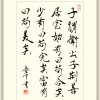 子謂衛公子荊善
居室始有曰苟合矣
少有曰苟完矣富有
曰苟美矣